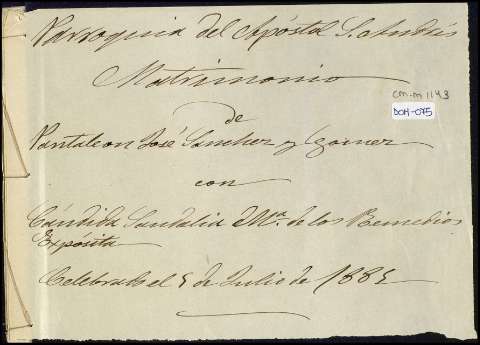 Parroquia del Apóstol S. Andrés
Matrimonio
cm-m 1143
de
DOM-075
Pantaleon José Sanchez y Gomez
con
Cándida Sandalia Mª. de los Remedios
Expósita
Celebrado el 5 de Julio de 1885